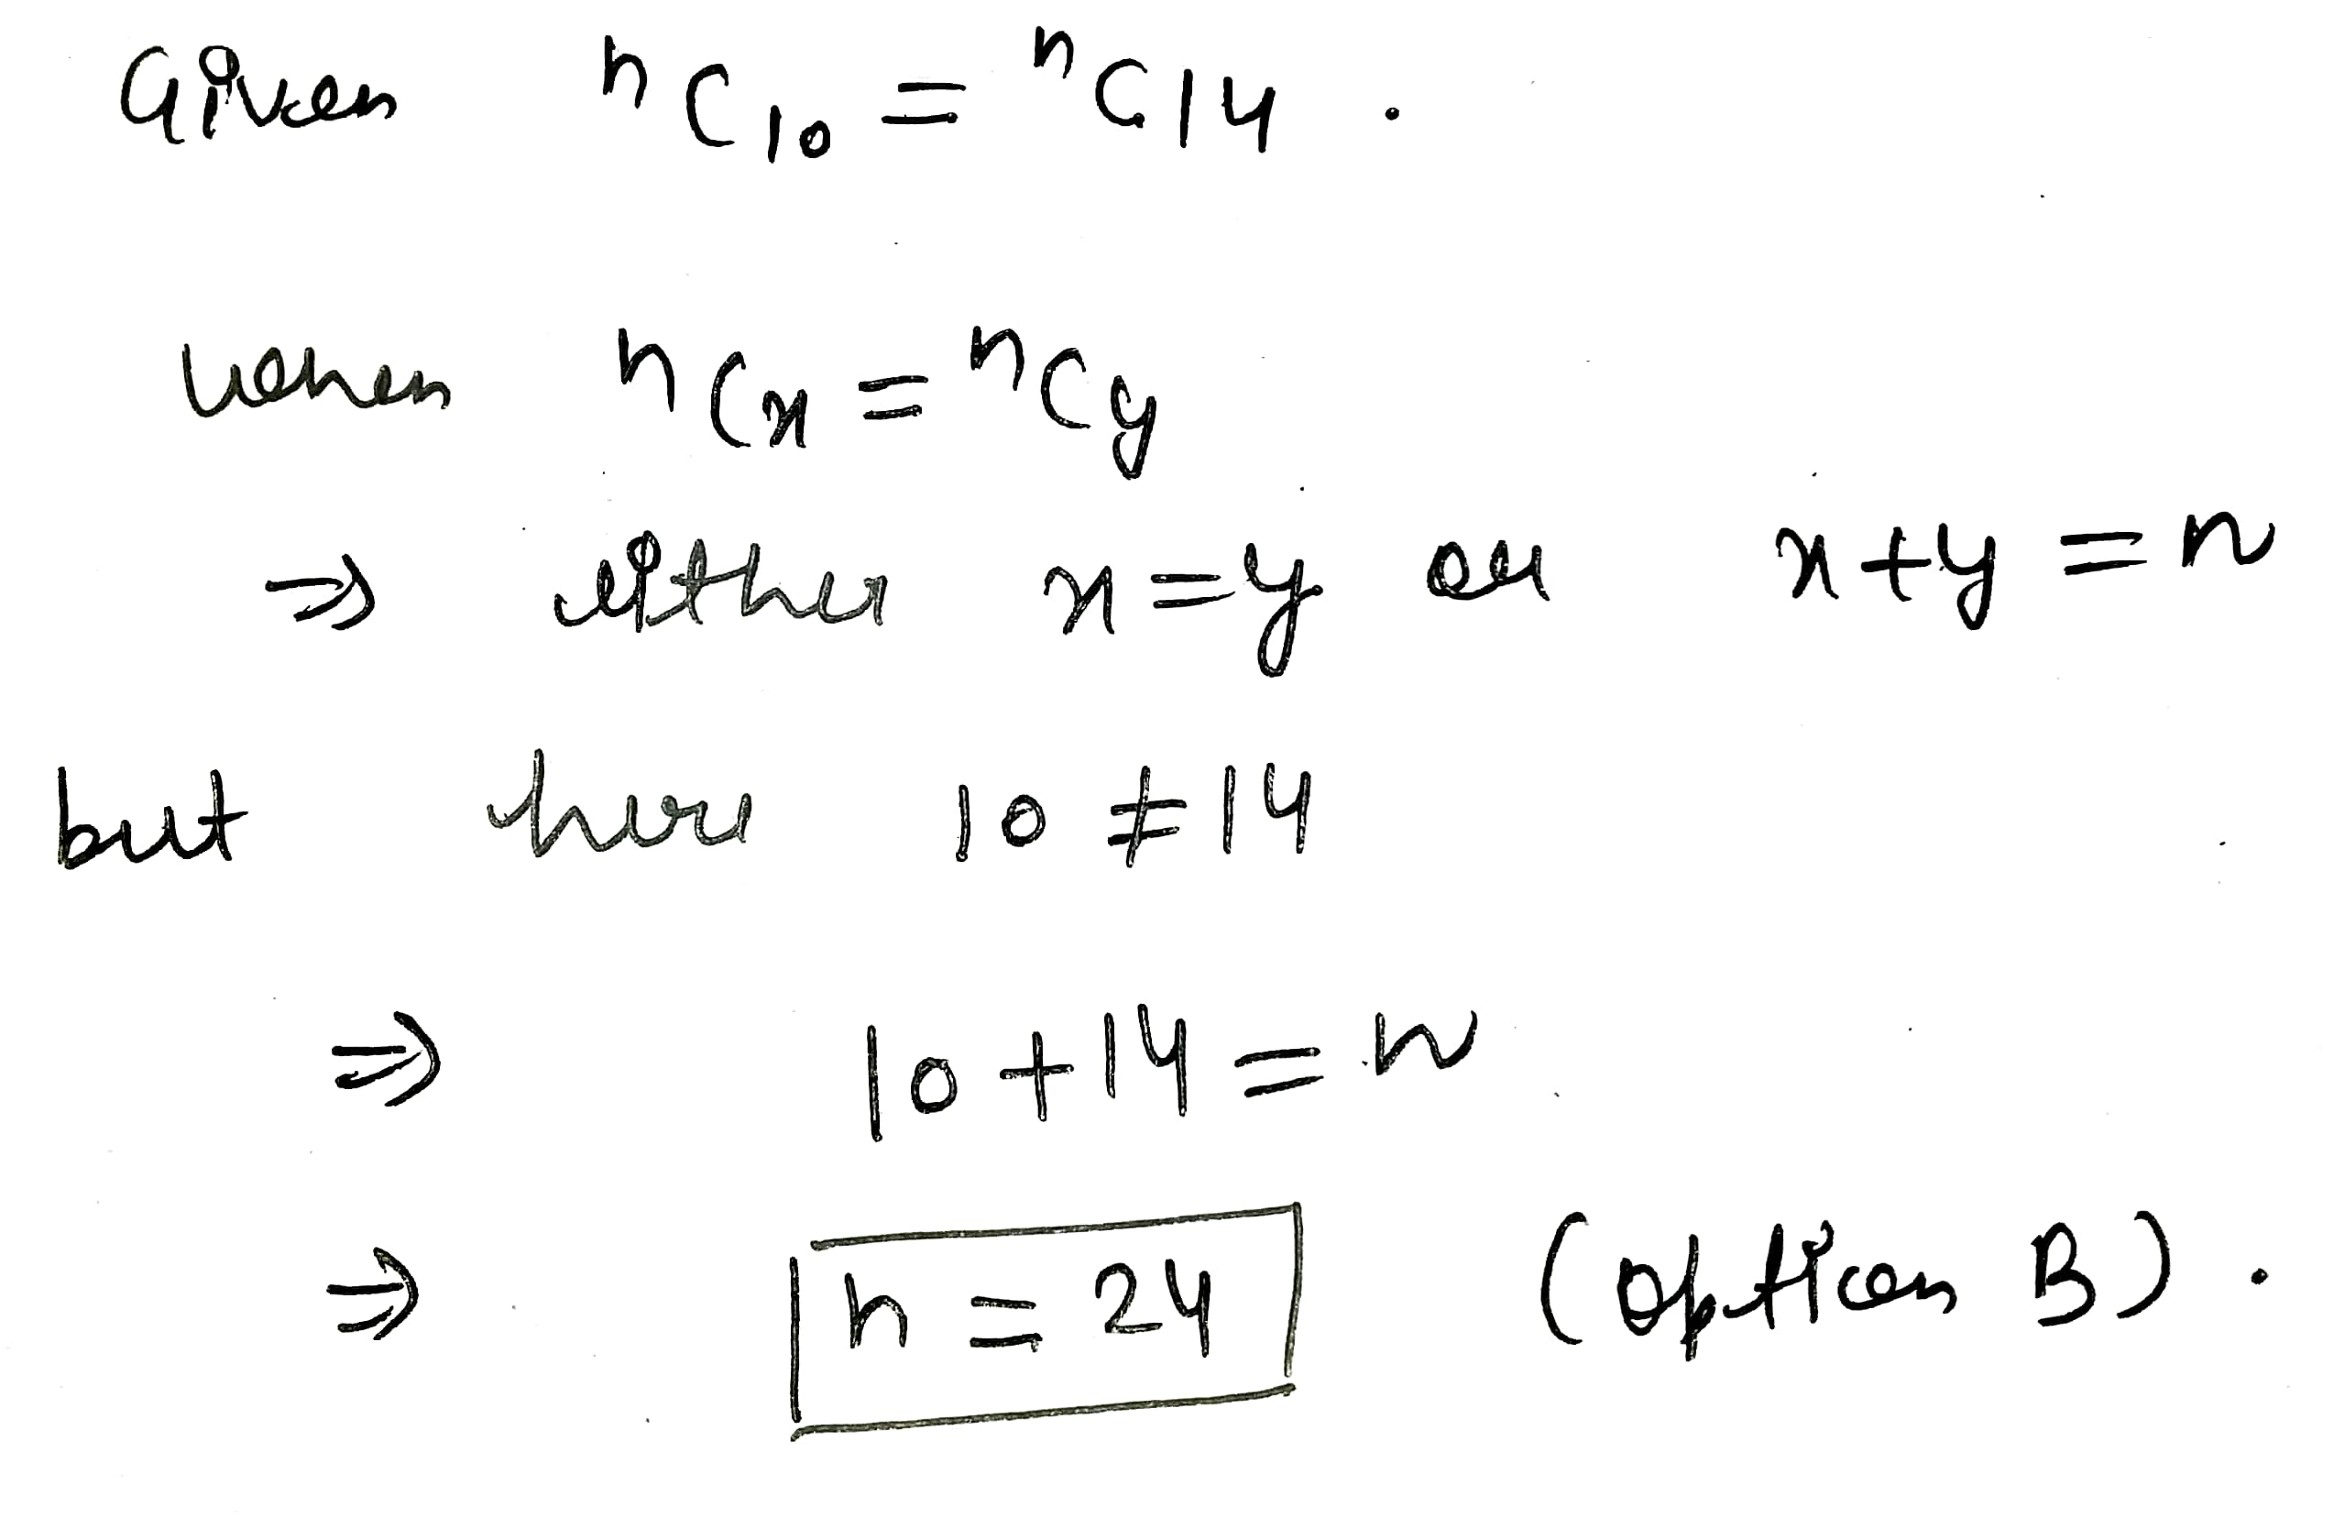 Given ⁿC₁₀ = ⁿC14 .
when ⁿCₓ = ⁿCy
⇒ either x=y or x+y=n
but here 10 ≠ 14
⇒ 10+14=n
⇒ n = 24 (option B).